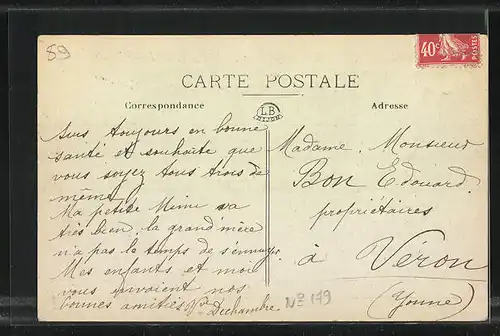 89
40c
POSTES
CARTE POSTALE
Correspondance
LB
DIJON
Adresse
suis toujours en bonne
santé et souhaite que
vous soyez tous trois de
même.
Ma petite Mimi va
très bien, la grand'mère
n'a pas le temps de s'ennuyer.
Mes enfants et moi
vous envoient nos
bonnes amitiés Vve Dechambre
Madame. Monsieur
Bon Edouard.
propriétaires
à Véron
(Yonne)
No 179